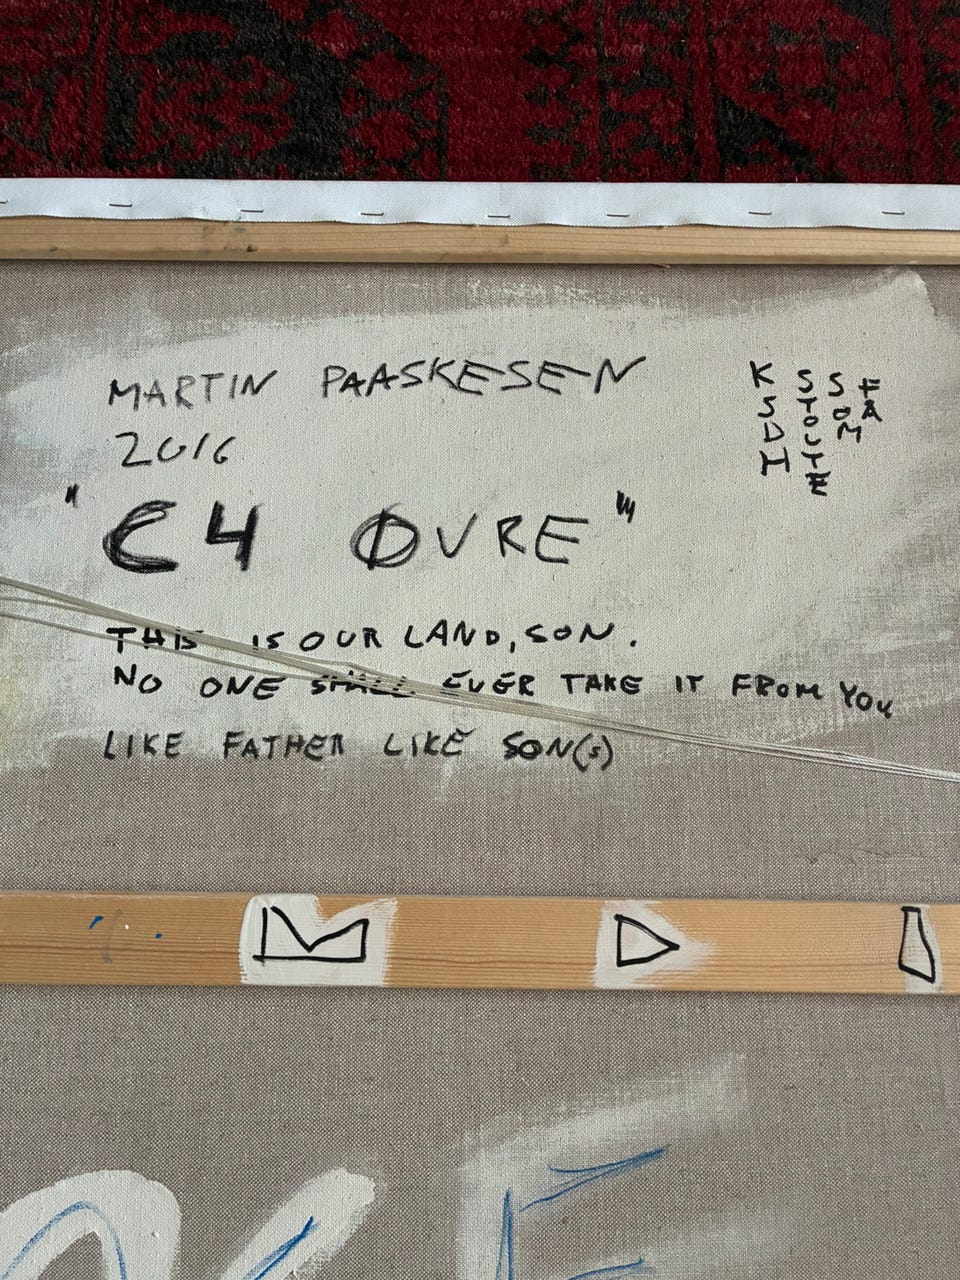 MARTIN PAASKESEN
2016
"C4 ØVRE"
THIS IS OUR LAND, SON.
NO ONE SHALL EVER TAKE IT FROM YOU
LIKE FATHER LIKE SON(S)
KSDH
STOLTE
SOM
FÅ